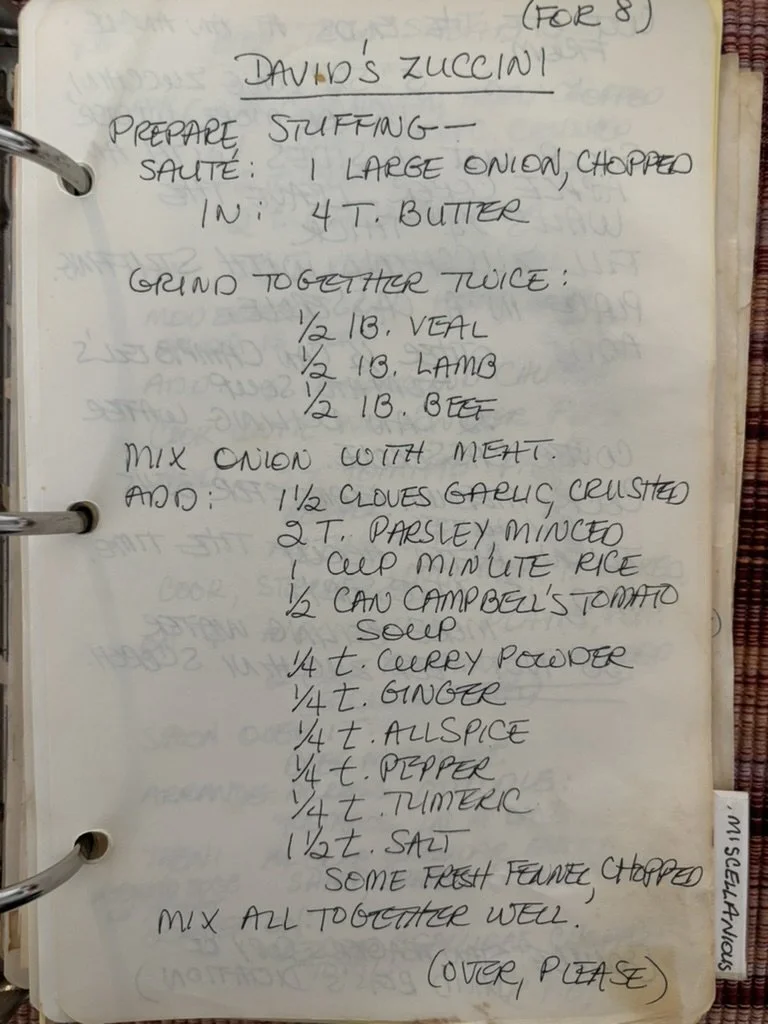 (FOR 8)
DAVID'S ZUCCINI
PREPARE STUFFING—
SAUTÉ: 1 LARGE ONION, CHOPPED
IN: 4 T. BUTTER
GRIND TOGETHER TWICE:
1/2 lB. VEAL
1/2 lB. LAMB
1/2 lB. BEEF
MIX ONION WITH MEAT.
ADD: 1 1/2 CLOVES GARLIC, CRUSHED
2 T. PARSLEY, MINCED
1 CUP MINUTE RICE
1/2 CAN CAMPBELL'S TOMATO
SOUP
1/4 t. CURRY POWDER
1/4 t. GINGER
1/4 t. ALLSPICE
1/4 t. PEPPER
1/4 t. TUMERIC
1 1/2 t. SALT
SOME FRESH FENNEL, CHOPPED
MIX ALL TOGETHER WELL.
(OVER, PLEASE)
MISCELLANIOUS